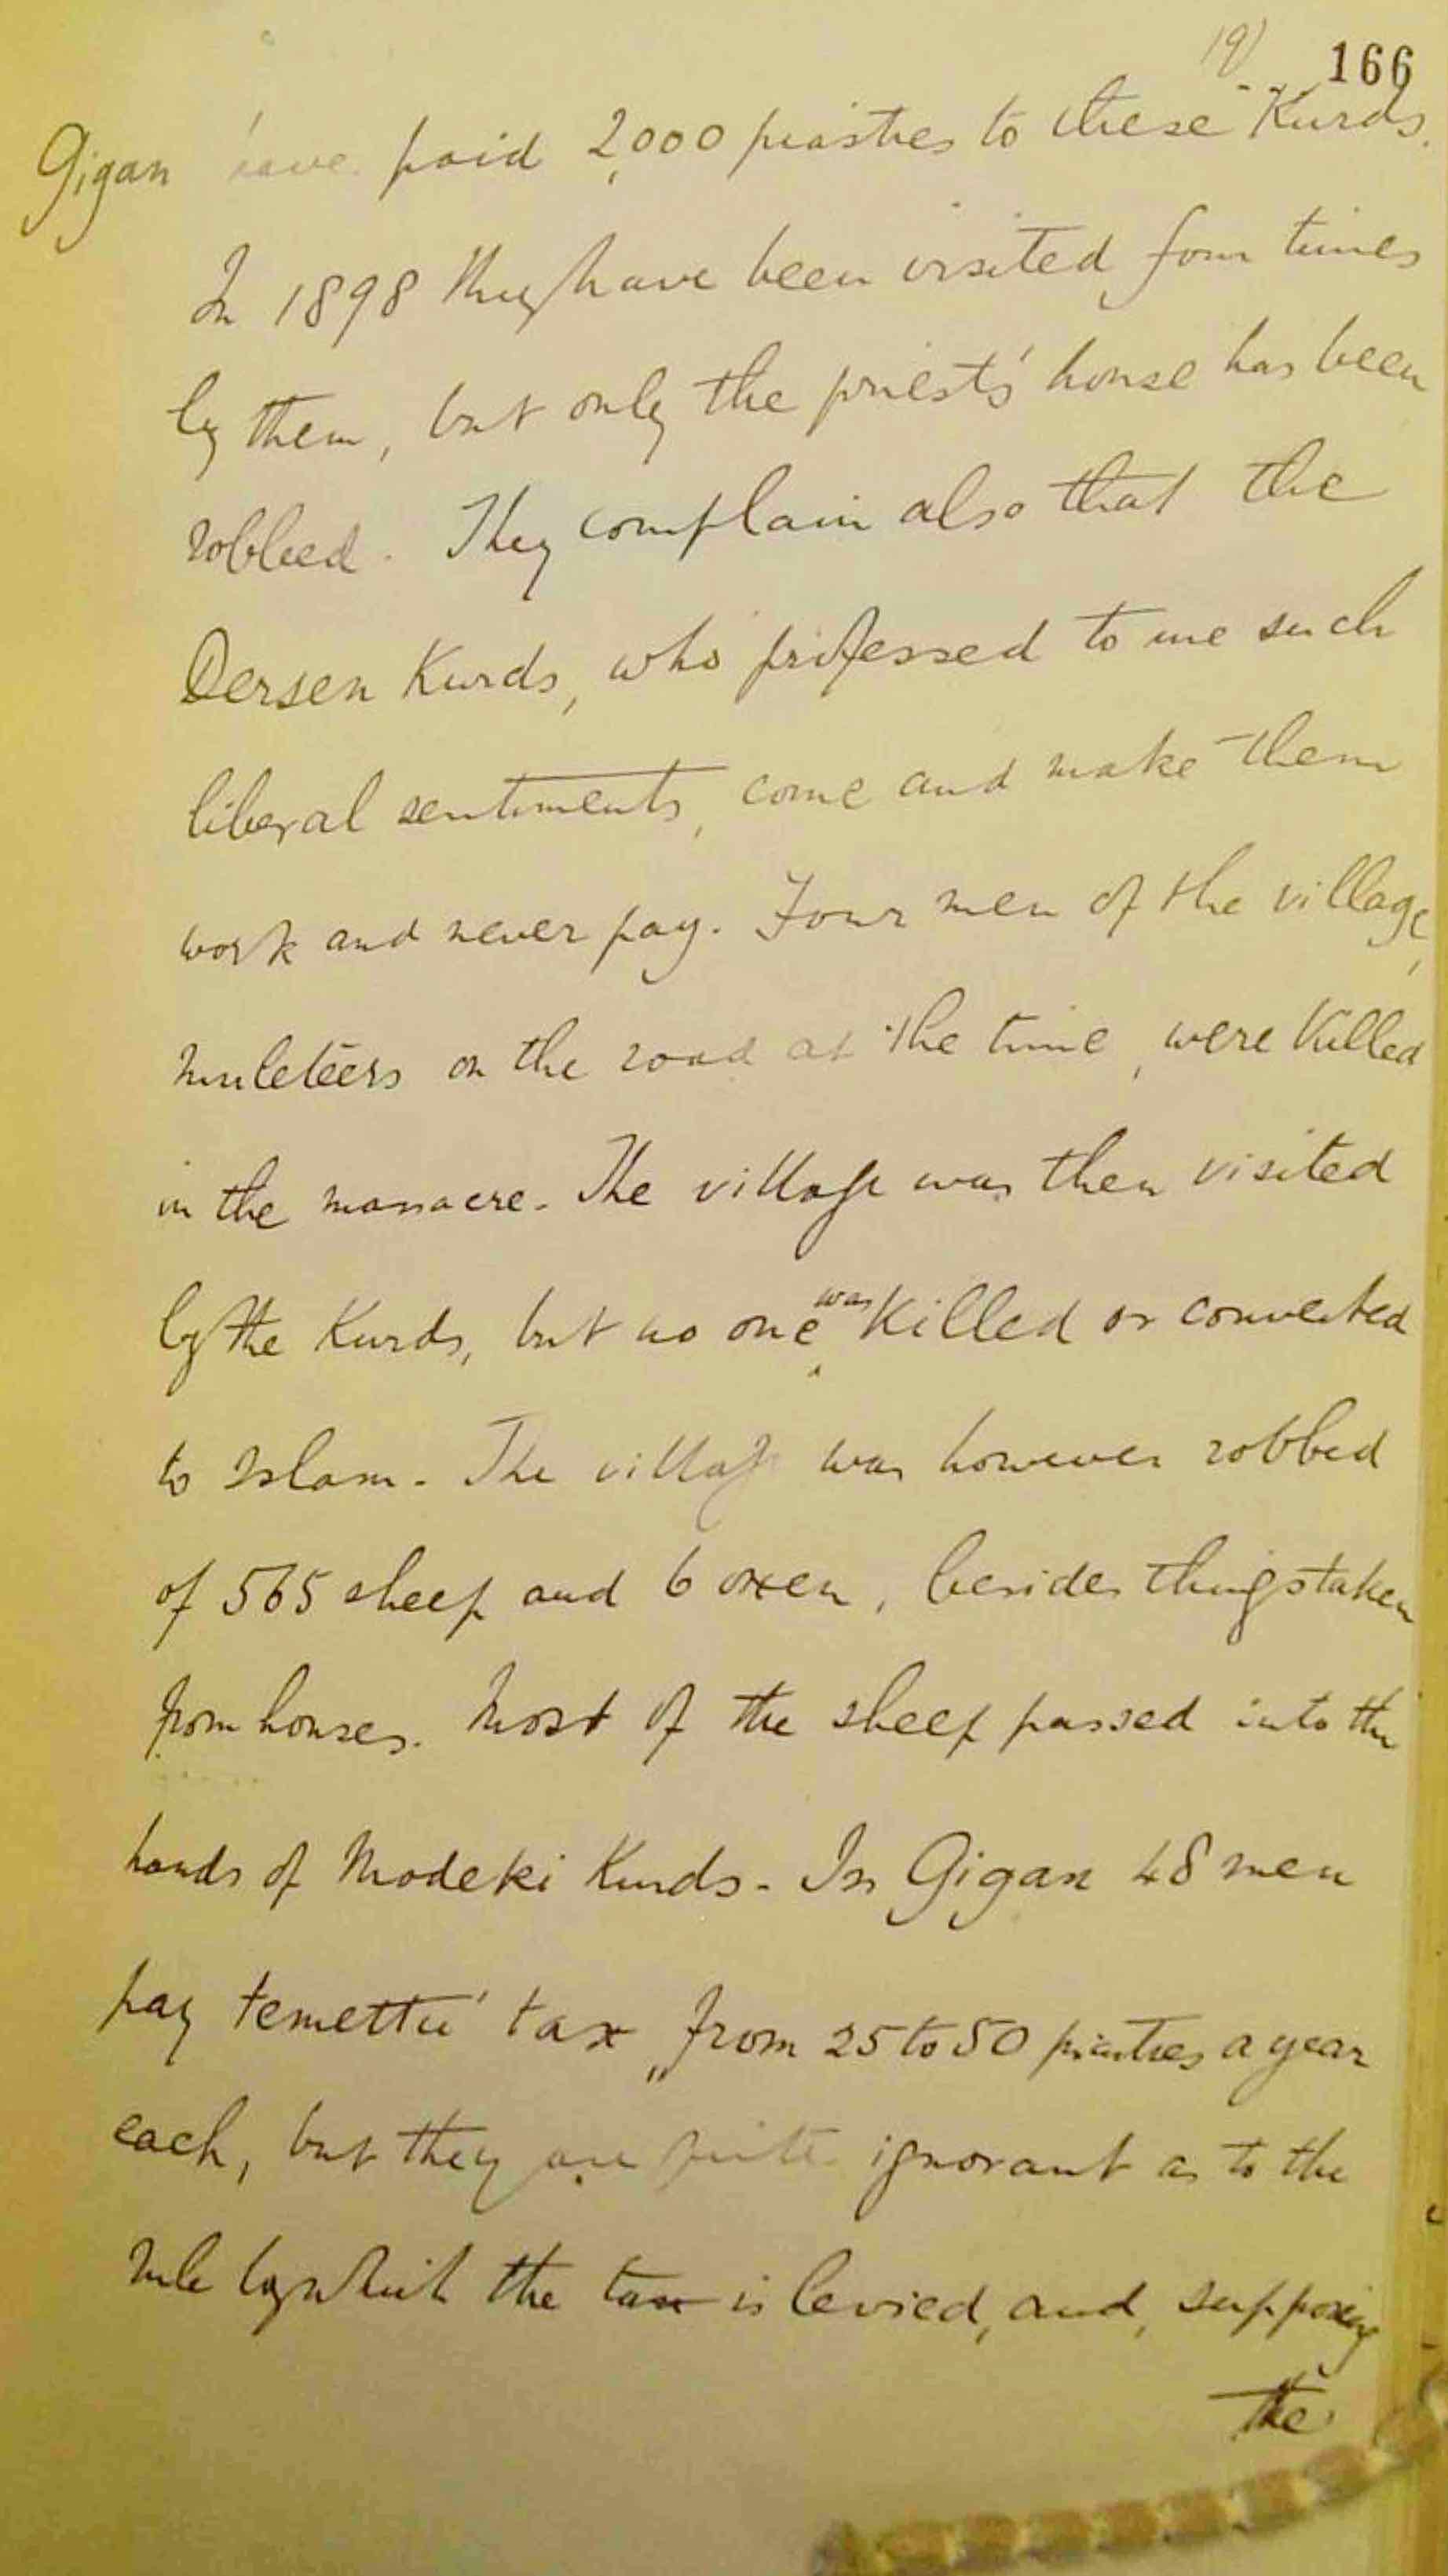 19) 166
Gigan have paid 2,000 piastres to these Kurds.
In 1898 they have been visited four times
by them, but only the priests' house has been
robbed. They complain also that the
Dersen Kurds, who professed to me such
liberal sentiments, come and make them
work and never pay. Four men of the village,
muleteers on the road at the time, were killed
in the massacre. The village was then visited
by the Kurds, but no one was killed or converted
to Islam. The village was however robbed
of 565 sheep and 6 oxen, besides things taken
from houses. Most of the sheep passed into the
hands of Modeki Kurds. In Gigan 48 men
pay temettu' tax, from 25 to 50 piastres a year
each, but they are quite ignorant as to the
rule by which the tax is levied, and, supposing
the